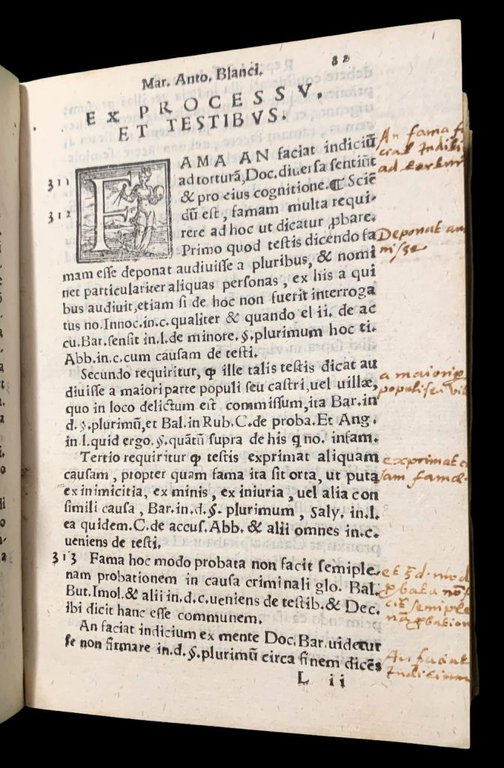 82
Mar. Anto. Blanci.
EX PROCESSV,
ET TESTIBVS.
311
312
FAMA AN faciat indiciũ
ad torturã, Doc. diuersa sentiũt
& pro eius cognitione. ¶ Sciẽ
dũ est, famam multa requi-
rere ad hoc ut dicatur ꝓbare.
Primo quod testis dicendo fa
mam esse deponat audiuisse a pluribus, & nomi
net particulariter aliquas personas, ex his a qui
bus audiuit, etiam si de hoc non fuerit interroga
tus no. Innoc. in. c. qualiter & quando el ii. de ac
cu. Bar. sensit in. l. de minore. §. plurimum hoc ti.
Abb. in. c. cum causam de testi.
Secundo requiritur, ꝙ ille talis testis dicat au
diuisse a maiori parte populi seu castri, uel uillæ,
quo in loco delictum eit commissum, ita Bar. in
d. §. plurimũ, et Bal. in Rub. C. de proba. Et Ang.
in l. quid ergo. §. quãtũ supra de his q no. infam.
Tertio requiritur ꝙ testis exprimat aliquam
causam, propter quam fama ita sit orta, ut puta
ex inimicitia, ex minis, ex iniuria, uel alia con
simili causa, Bar. in. d. §. plurimum, Saly. in. l.
ea quidem. C. de accus. Abb. & alii omnes in. c.
ueniens de testi.
313 Fama hoc modo probata non facit semiple-
nam probationem in causa criminali glo. Bal.
But. Imol. & alii in. d. c. ueniens de testib. & Dec.
ibi dicit hanc esse communem.
An faciat indicium ex mente Doc. Bar. uidetur
se non firmare in. d. §. plurimũ circa finem dicẽs
L ii
An fama f
ciat Indici
ad tortur
Deponat au
uisse
a maiori p
populi seu vil
exprimat c
sam famæ
et ꝗ d. mod
ꝓbata nõ f
cit semiple
nã ꝓbation
An faciat
Indicium